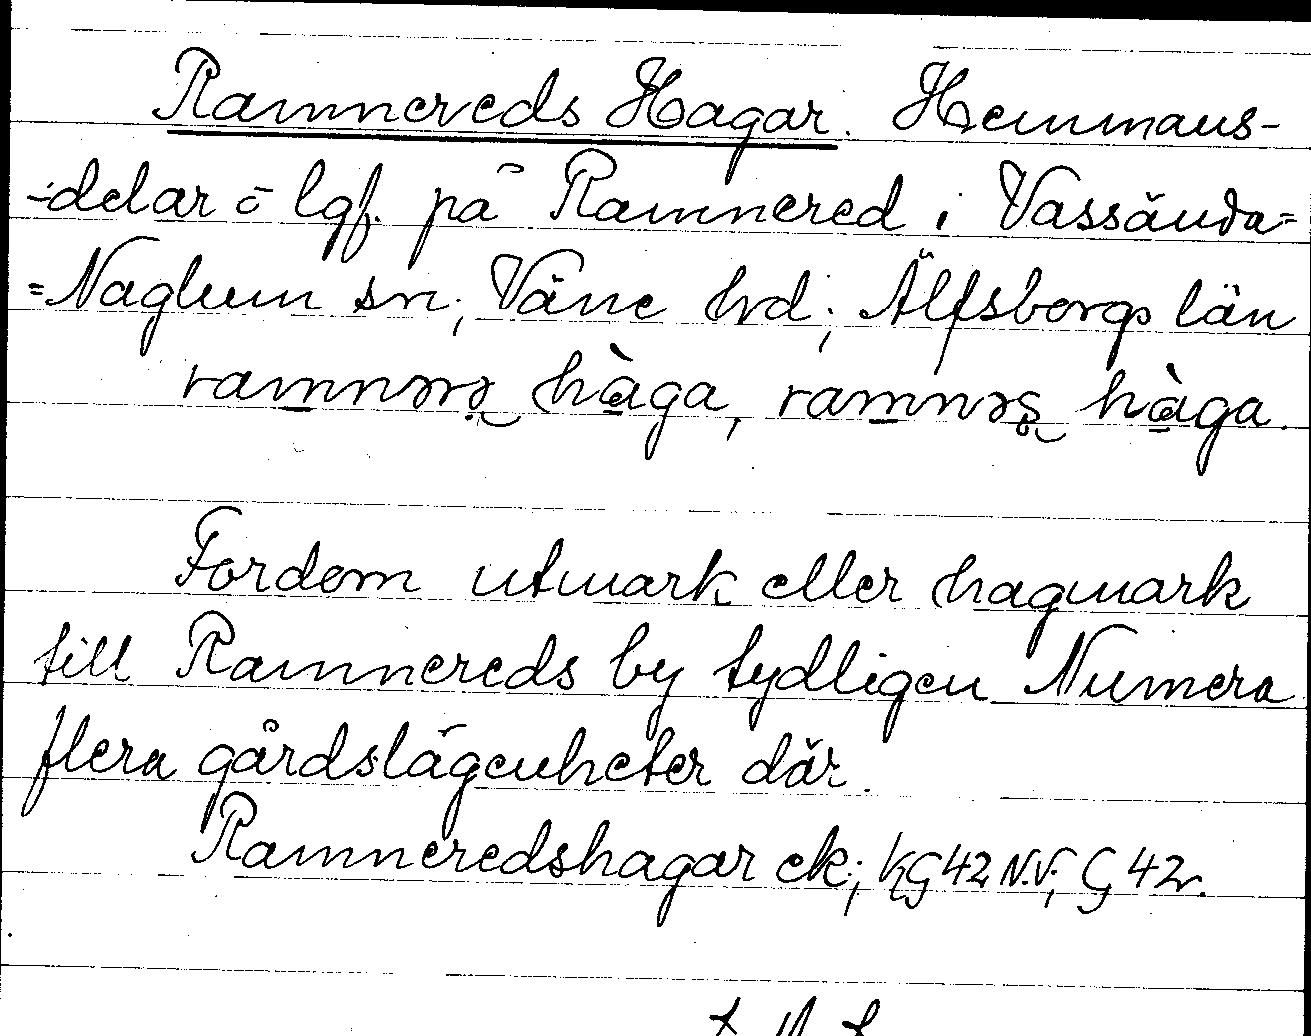 Ramnereds Hagar. Hemmans-
-delar o lgf. på Ramnered i Vassända=
=Naglum sn; Väne hrd; Älfsborgs län
hàga, hàga.
Fordom utmark eller hagmark
till Ramnereds by tydligen Numera
flera gårdslägenheter där.
Ramneredshagar ek; KG 42 N.V; G 42.